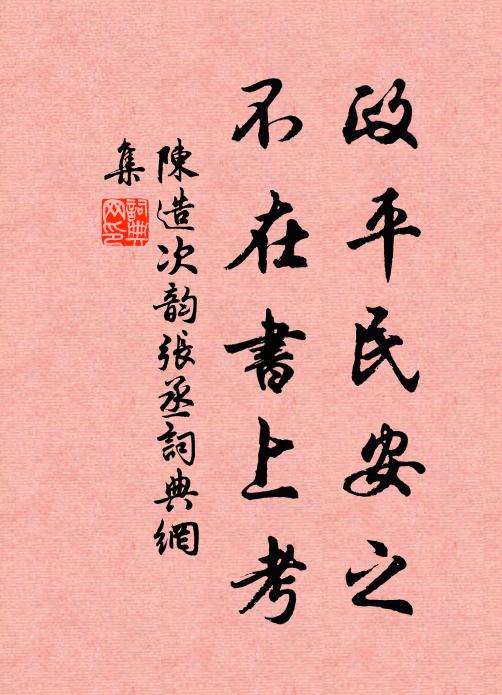 政平民安之
不在書上考
陳造次韵張丞詞典網
集
詞典
网印